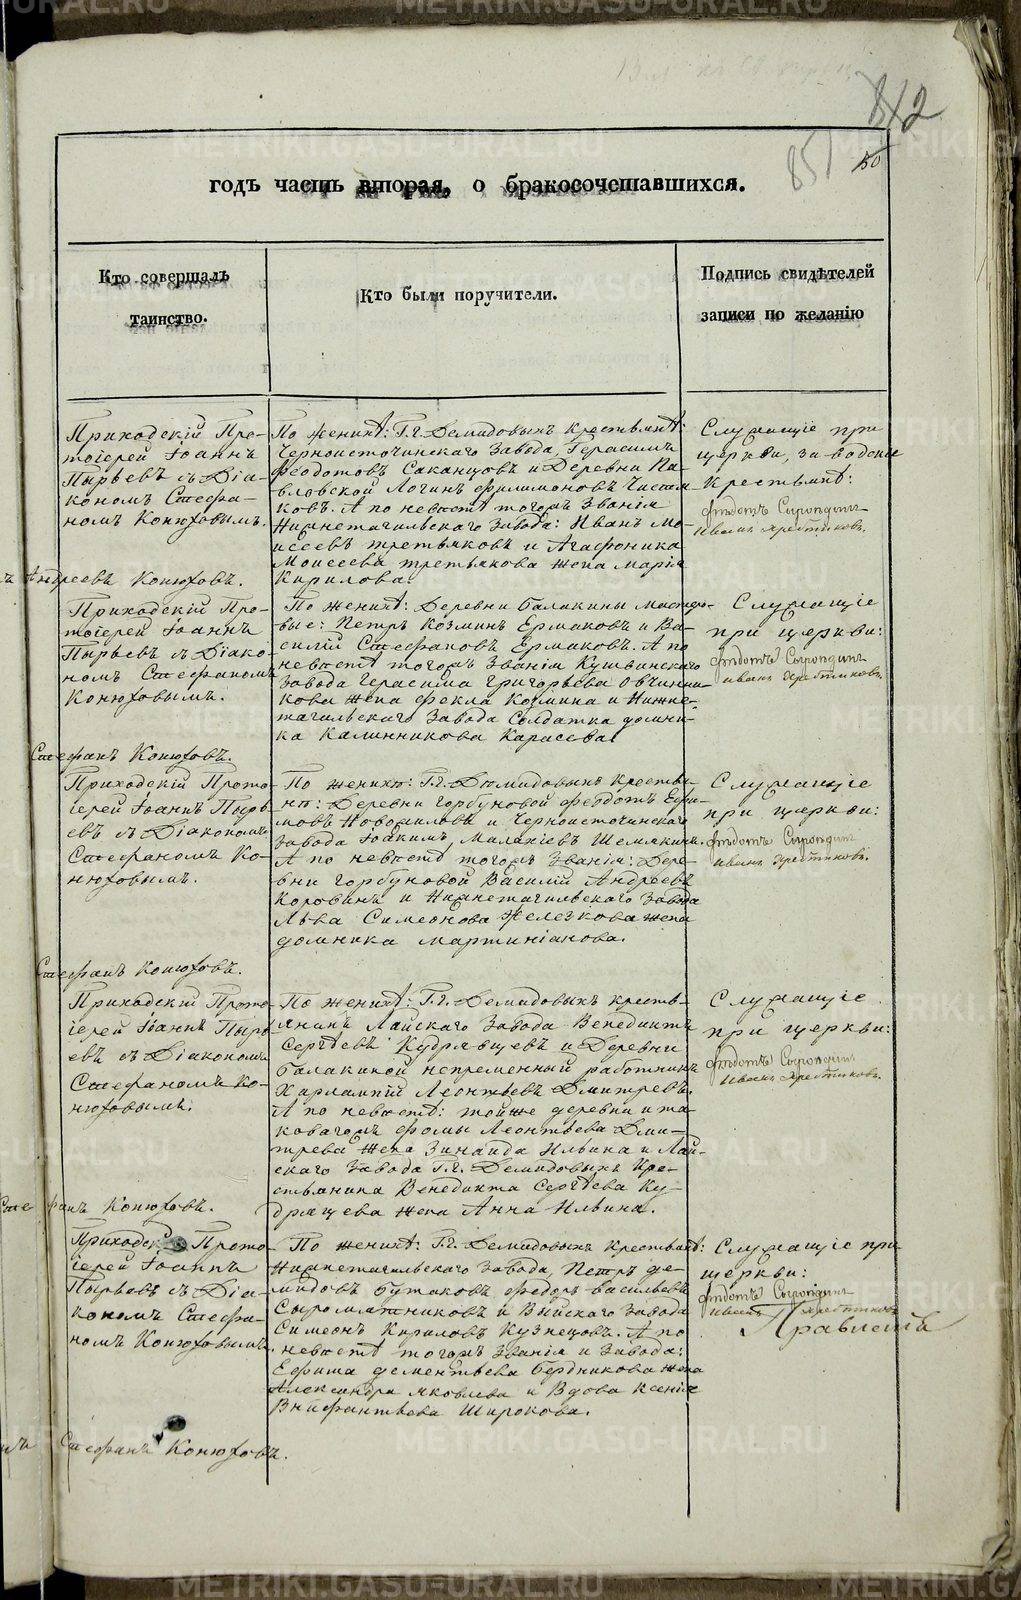 842
851
150
годъ часть вторая, о бракосочетавшихся.
Кто совершалъ
таинство.
Кто были поручители.
Подпись свидѣтелей
записи по желанію
Приходскій Про-
тоіерей Іоаннъ
Пырьевъ съ Діа-
кономъ Стефа-
номъ Конюховымъ.
По женихѣ: Г.г. Демидовыхъ крестьянѣ:
Черноисточинскаго Завода, Герасимъ
Феодотовъ Саканцовъ и Деревни Па-
вловской Логинъ Филимоновъ Чистя-
ковъ. А по невѣстѣ тогожъ Званія
Нижнетагильскаго Завода: Иванъ Мо-
исеевъ Третьяковъ и Агафоника
Моисеева Третьякова жена Марія
Кирилова.
Служащіе при
церкви, заводскіе
крестьянѣ:
Ѳедотъ
Иванъ
Андреевъ Конюховъ.
Приходскій Про-
тоіерей Іоаннъ
Пырьевъ съ Діако-
номъ Стефаномъ
Конюховымъ.
По женихѣ: Деревни Балакины Мастеро-
вые: Петръ Козминъ Ермаковъ и Ва-
силій Стефановъ Ермаковъ. А по
невѣстѣ тогожъ Званія Кушвинскаго
Завода Герасима Григорьева Овчинни-
кова жена Фекла Козмина и Нижне-
тагильскаго Завода Солдатка Домни-
ка Калинникова Карасева.
Служащіе
при церкви:
Ѳедотъ
Иванъ
Стефанъ Конюховъ.
Приходскій Прото-
іерей Іоаннъ Пырь-
евъ съ Діакономъ
Стефаномъ Ко-
нюховымъ.
По женихѣ: Г.г. Демидовыхъ крестья-
нѣ: Деревни Горбуновой Феодотъ Ефи-
мовъ Новоилов и Черноисточинскаго
Завода Іоакимъ Малахіевъ Шемякинъ.
А по невѣстѣ тогожъ Званія: Дере-
вни Горбуновой Василій Андреевъ
Коровинъ и Нижнетагильскаго Завода
Льва Симеонова Железкова жена
Домника Мартиніанова.
Служащіе
при церкви:
Ѳедотъ
Иванъ
Стефанъ Конюховъ.
Приходскій Прото-
іерей Іоаннъ Пырь-
евъ съ Діакономъ
Стефаномъ Ко-
нюховымъ.
По женихѣ: Г.г. Демидовыхъ кресть-
янинъ Лайскаго Завода Венедиктъ
Сергѣевъ Кудрявцевъ и Деревни
Балакиной непременный работникъ
Харлампій Леонтьевъ Дмитревъ.
А по невѣстѣ: тойже деревни и та-
ковагожъ Фомы Леонтьева Дми-
трева жена Зинаида Ильина и Лай-
скаго Завода Г.г. Демидовыхъ Кре-
стьянина Венедикта Сергѣева Ку-
дрящева жена Анна Ильина.
Служащіе
при церкви:
Ѳедотъ
Иванъ
Стефанъ Конюховъ.
Приходскій Прото-
іерей Іоаннъ
Пырьевъ съ Діа-
кономъ Стефа-
номъ Конюховымъ.
По женихѣ: Г.г. Демидовыхъ Крестьянѣ:
Нижнетагильскаго Завода, Петръ Де-
мидовъ Бутаковъ Федоръ Васильевъ
Сыромятниковъ и Выйскаго Завода
Симеонъ Кириловъ Кузнецовъ. А по
невѣстѣ тогожъ Званія и Завода:
Ефима Дементьева Бердникова жена
Александра Яковлева и Вдова Ксенія
Внифантьева Широкова.
Служащіе при
церкви:
Ѳедотъ
Иванъ
Правленій
Стефанъ Конюховъ.
METRIKI.GASO-URAL.RU